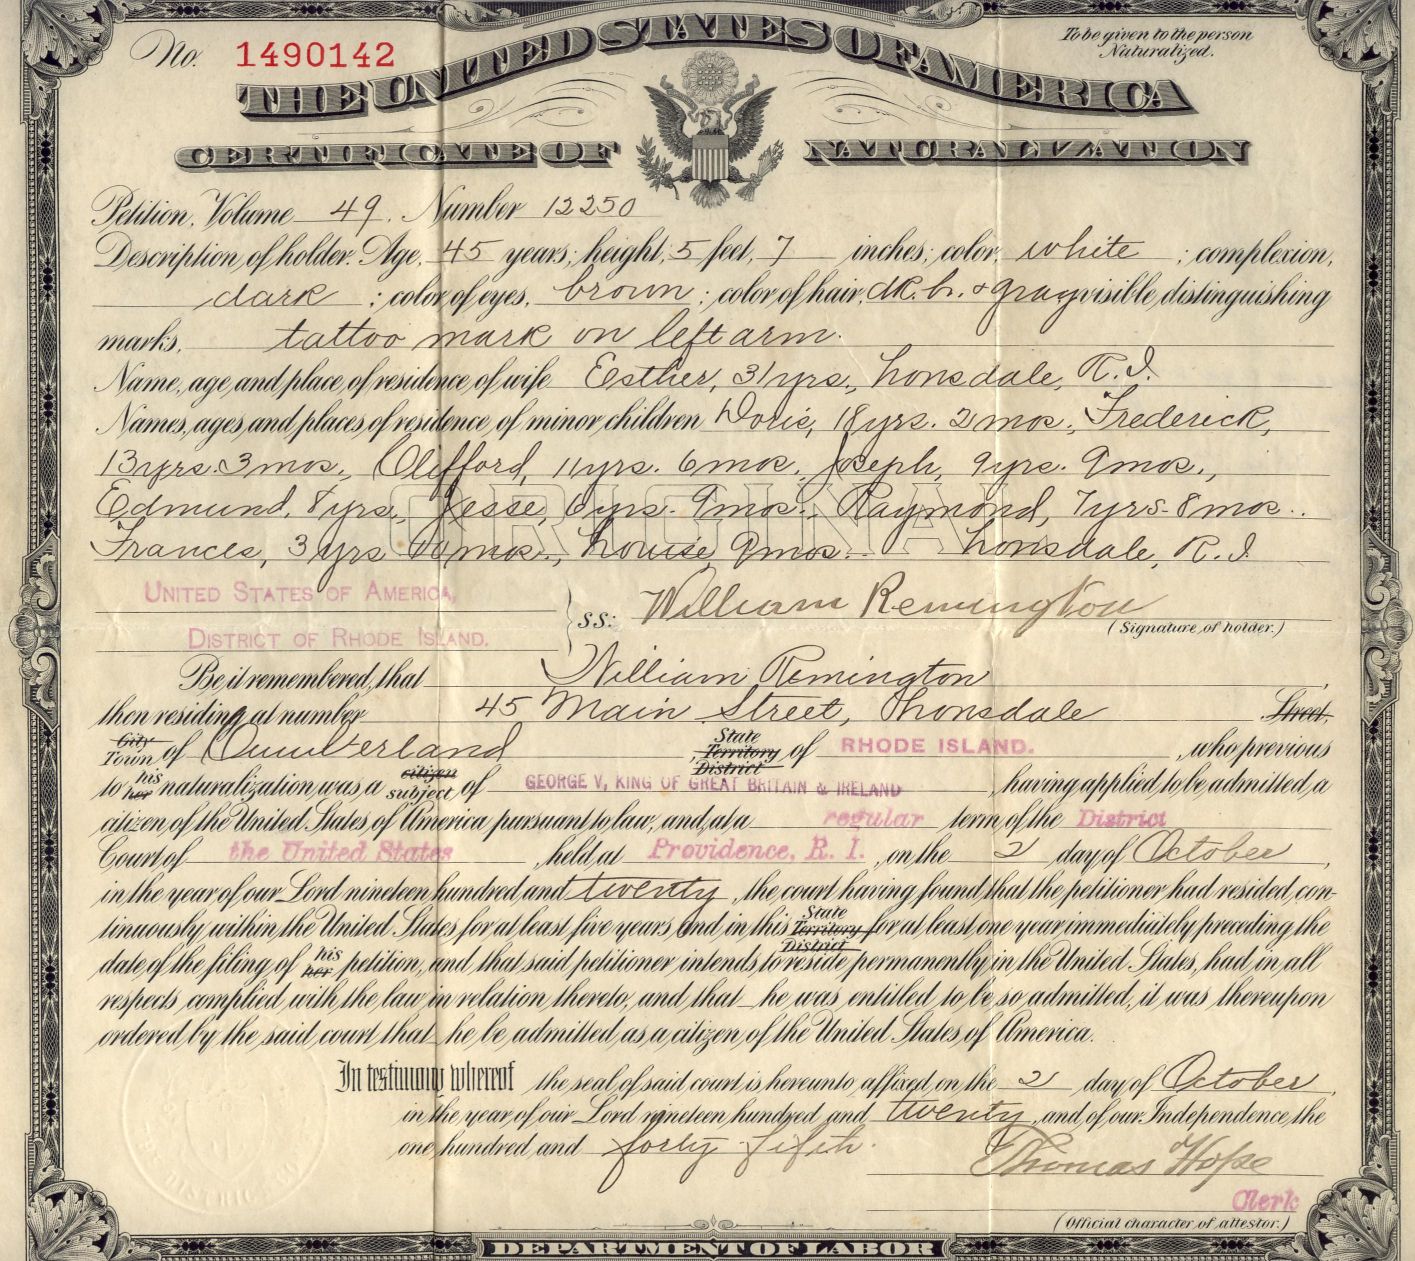 No. 1490142
To be given to the person Naturalized.
THE UNITED STATES OF AMERICA
CERTIFICATE OF NATURALIZATION
Petition, Volume 49, Number 12250
Description of holder: Age, 45 years; height, 5 feet, 7 inches; color, white ; complexion,
dark ; color of eyes, brown ; color of hair, dk. br. + gray visible distinguishing
marks, tattoo mark on left arm.
Name, age and place of residence of wife Esther, 31 yrs., Lonsdale, R.I.
Names, ages and places of residence of minor children Doris, 18 yrs. 2 mos., Frederick,
13 yrs. 3 mos., Clifford, 11 yrs. 6 mos., Joseph, 9 yrs. 9 mos.,
Edmund, 8 yrs., Jesse, 6 yrs. 9 mos., Raymond, 7 yrs. 8 mos..
ORIGINAL
Frances, 3 yrs mos., Louise, 9 mos. Lonsdale, R.I.
UNITED STATES OF AMERICA,
DISTRICT OF RHODE ISLAND.
ss: William Remington
(Signature of holder.)
Be it remembered, that William Remington ,
then residing at number 45 Main Street, Lonsdale Street,
City Town of Cumberland , State Territory District of RHODE ISLAND. , who previous
to his her naturalization was a citizen subject of GEORGE V, KING OF GREAT BRITAIN & IRELAND , having applied to be admitted a
citizen of the United States of America pursuant to law, and, at a regular term of the District
Court of the United States , held at Providence, R. I. , on the 2 day of October ,
in the year of our Lord nineteen hundred and twenty , the court having found that the petitioner had resided con-
tinuously within the United States for at least five years and in this State Territory District for at least one year immediately preceding the
date of the filing of his her petition, and that said petitioner intends to reside permanently in the United States, had in all
respects complied with the law in relation thereto, and that he was entitled to be so admitted, it was thereupon
ordered by the said court that he be admitted as a citizen of the United States of America.
In testimony whereof the seal of said court is hereunto affixed on the 2 day of October ,
in the year of our Lord nineteen hundred and twenty , and of our Independence the
one hundred and forty-fifth.
Thomas Hope
Clerk
(Official character of attestor.)
DEPARTMENT OF LABOR